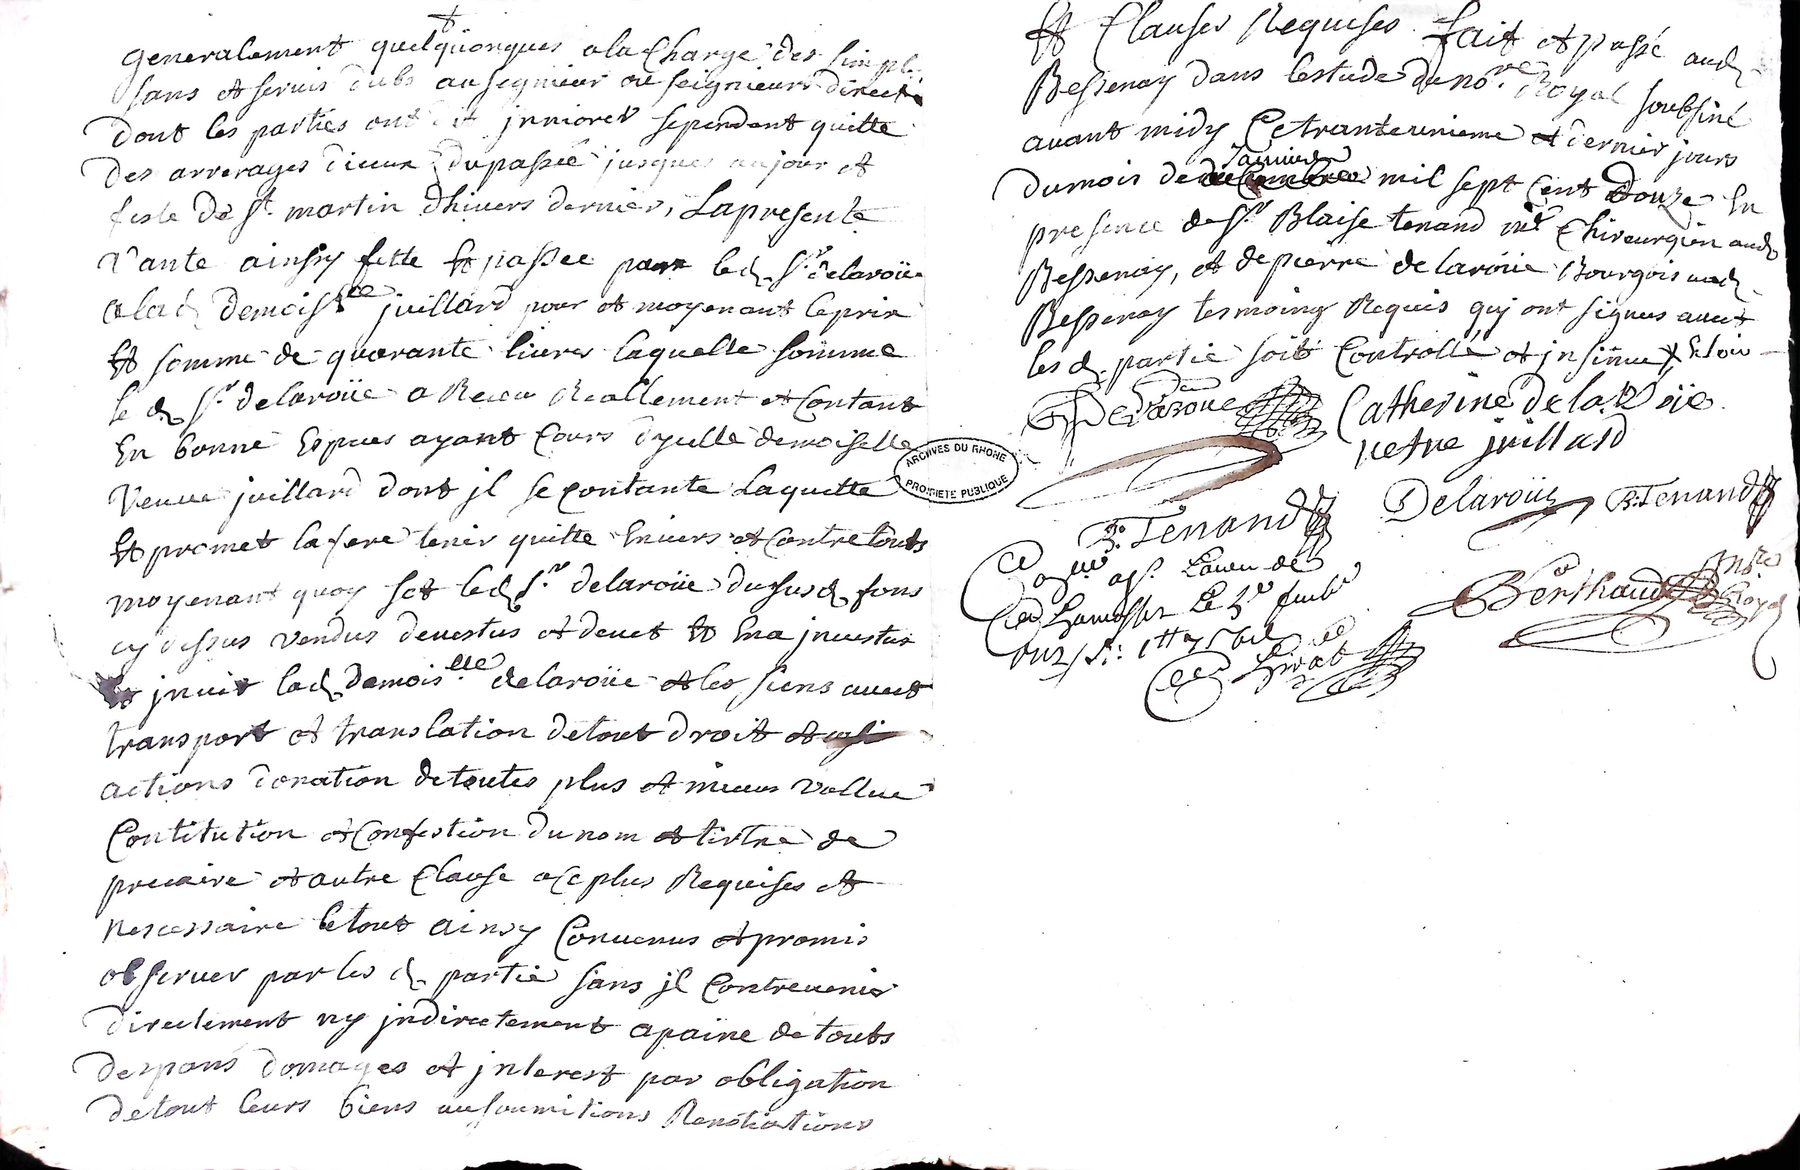 generalement quelquonques a la Charge des simple
sans et servis dubs au segnieur ou seignieurs direct
dont les parties ont dit jnniorer sependent quitte
des arrerages dieux du passée jusques au jour et
feste de St. martin dhivers dernier, La presente
vante ainsy fette Et passee par led. Sr. delaroüe
a lad. demoislle juillard pour et moyenant le prix
Et somme de quarante livres laquelle somme
led. Sr. delaroüe a Receu Reallement et Contant
En bonne Espices ayant Cours dyselle demoiselle
Veuve juillard dont jl se Contante Laquelle
Et promet la fere tenir quitte Envers et Contre touts
moyenant quoy set led. Sr. delaroüe du susd. fons
cy dessus vendus devestus et devet Et En a jnvestus
Et jnvit lad. Demoislle delaroüe et les siens avect
transport et translation de tout droit
actions donation de toutes plus et mieux vallue
Contitution et Confestion du nom et tirtre de
precaire et autre Clause a Ce plus Requises et
nescessaire le tout ainsy Convenus et promis
observer par les d. partie sans jl Contrevenir
directement ny jndirectement a paine de touts
despans domages et jnterest par obligation
de tout leurs biens au soumitions Renontiations
Et Clauses Requises fait et passé aud.
Bessenay dans lestude du nore. Royal soubsiné
avant midy Ce tranteunieme et dernier jours
janvier
du mois de decembre mil sept Cent Douze En
presence de Sr. Blaise tenand me Chireurgien aud.
Bessenay, et de pierre delaroüe Bourgois aud.
Bessenay tesmoing Requis quj ont signes avect
les d. partie soit Controllé et jnsinue
Delaroue Catherine de la Roüe
vefve juillard
B. Tenand Delaroüe P. Tenand
Berthaud nre Royal